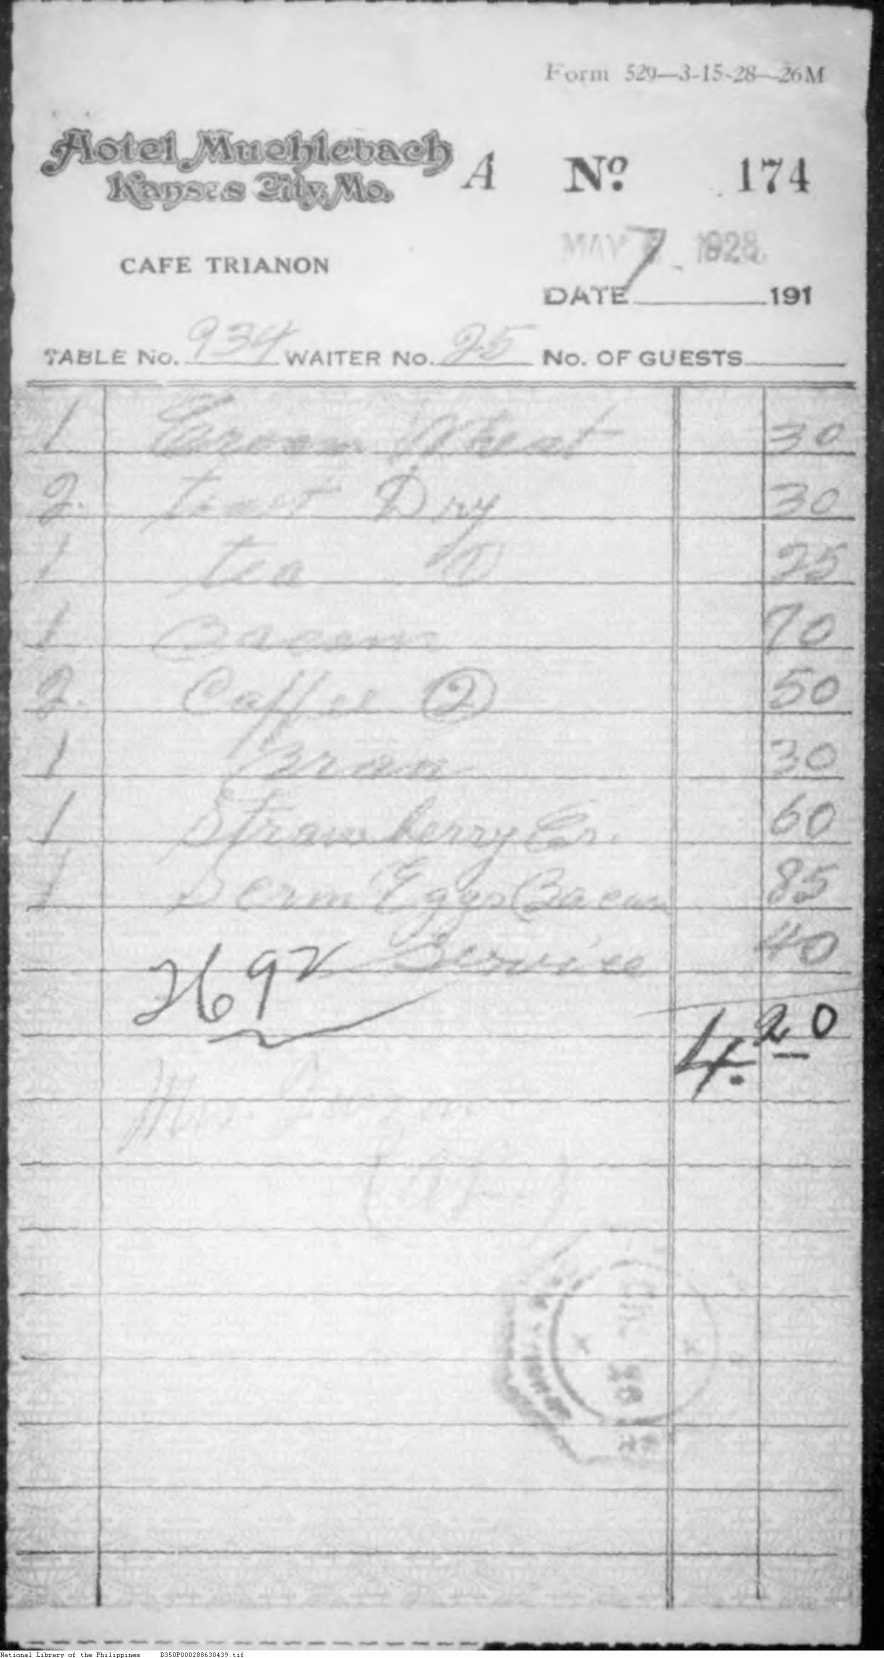 Form 529—3-15-28—26M
Hotel Muehlebach
Kansas City, Mo.
A No. 174
MAY 7 1928
CAFE TRIANON
DATE 191
TABLE No. 934 WAITER No. 25 No. OF GUESTS
1 Cream Wheat 30
2. Toast Dry 30
1 tea 1 25
1 Bacon 70
2. Coffee 2 50
1 Bran 30
1 Strawberry Cr. 60
1 Scrm Eggs Bacon 85
Service 40
2692
4.20
Mrs.